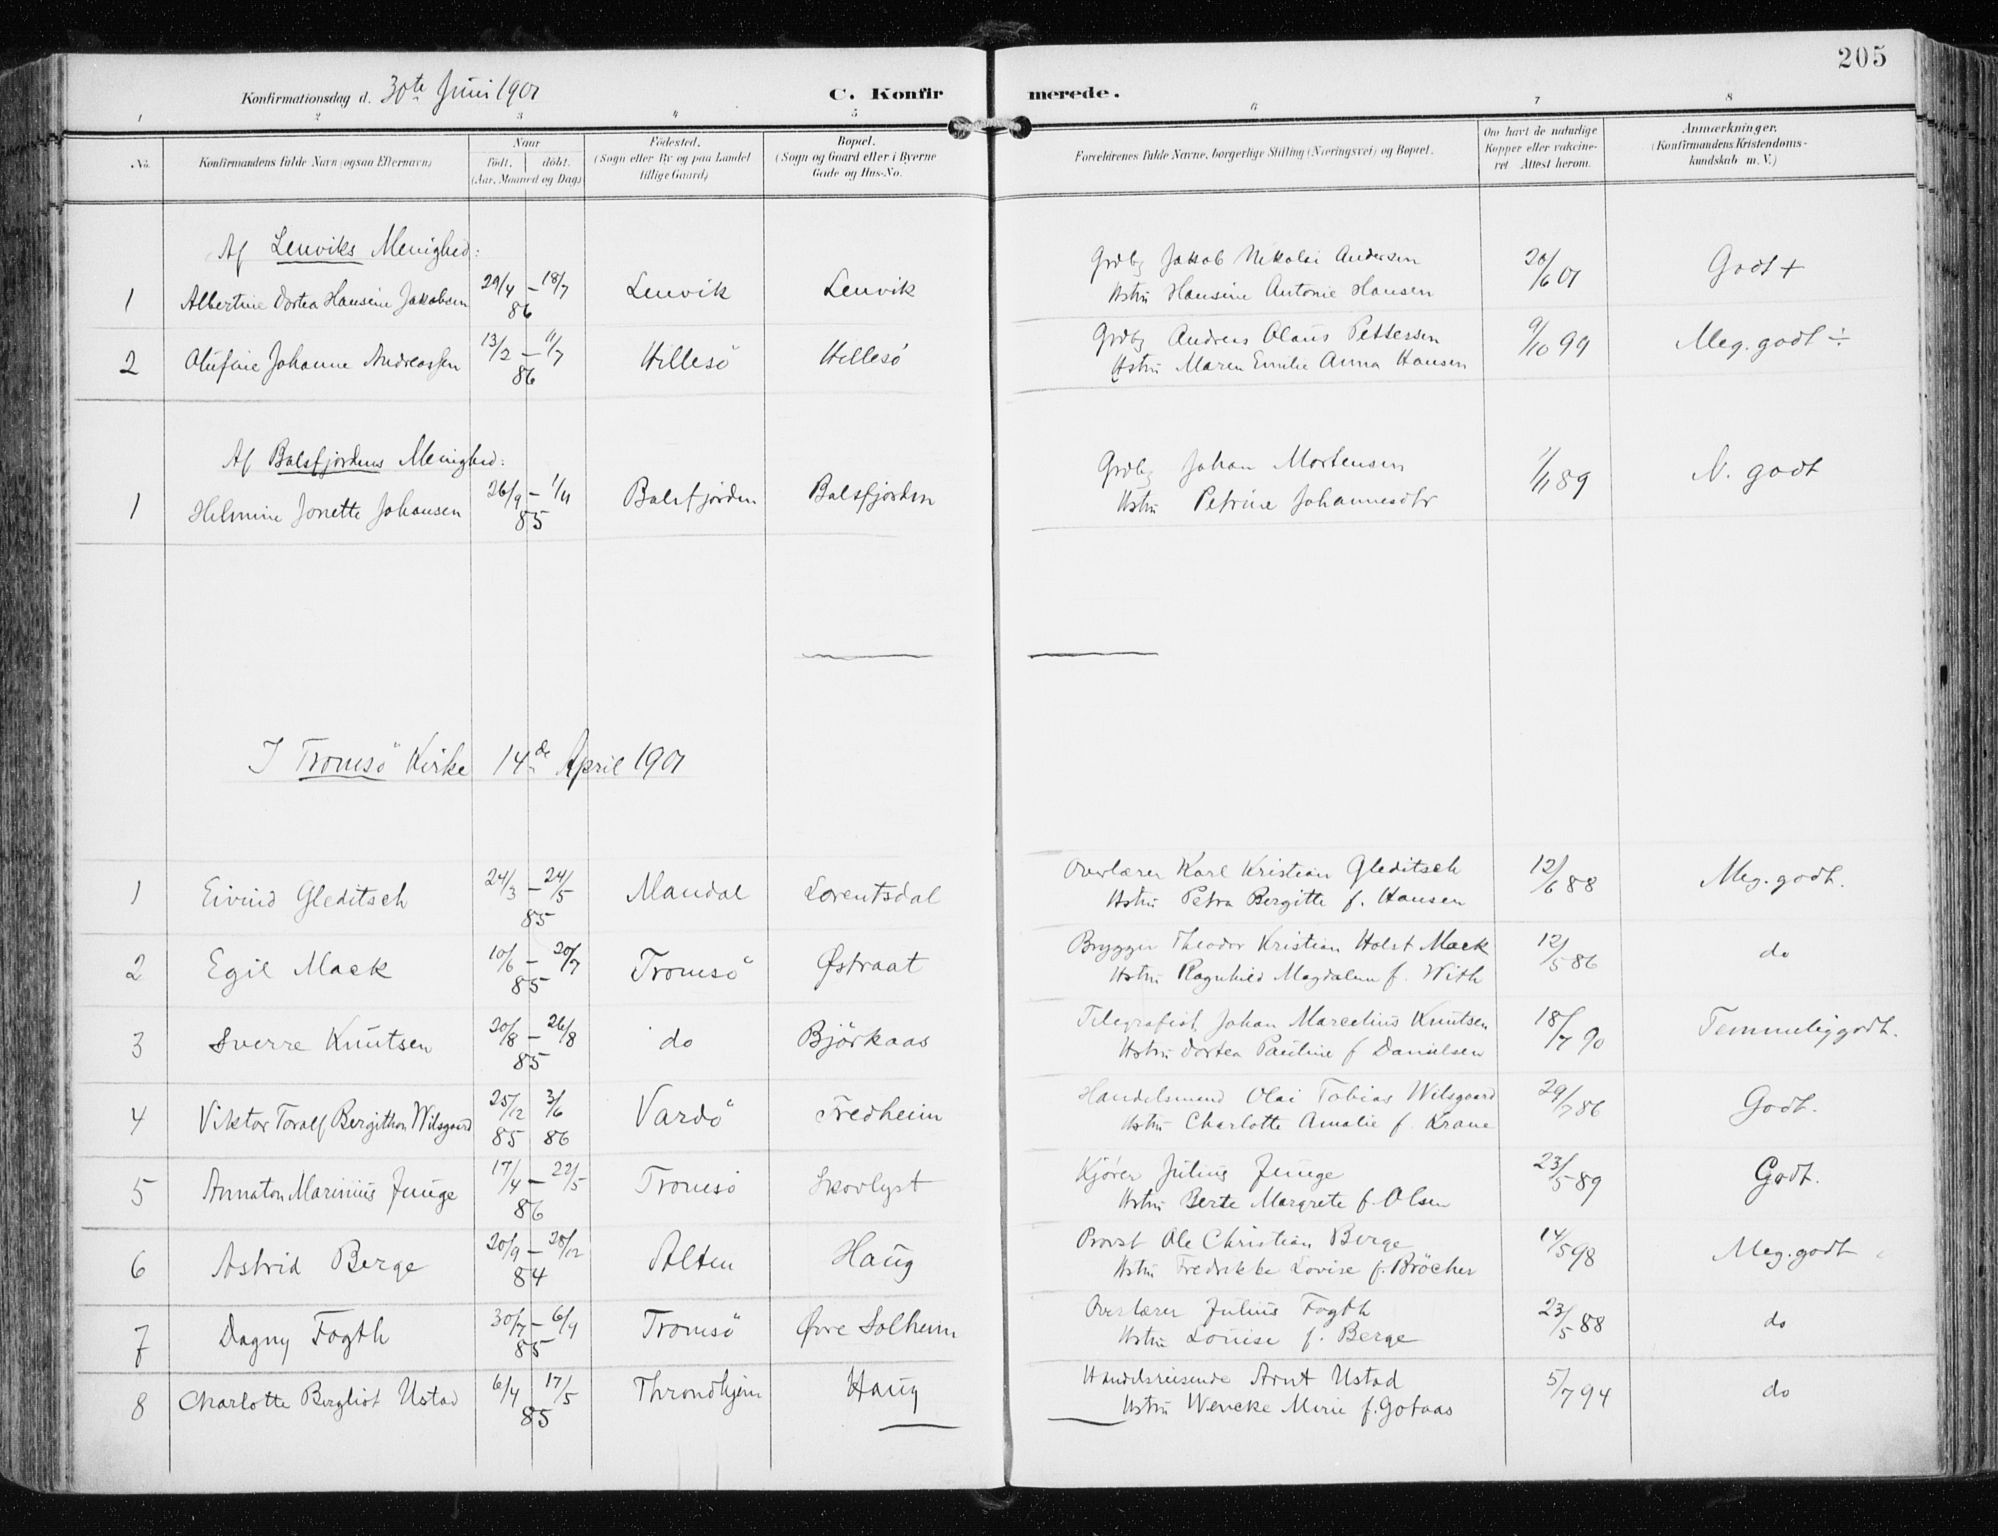 205
Konfirmationsdag d. 30te Juni 1901
C. Konfirmerede.
1 2 3 4 5 6 7 8
No. Konfirmandens fulde Navn (ogsaa Efternavn) Naar født, døbt. (Aar, Maaned og Dag) Fødested. (Sogn eller By og paa Landet tillige Gaard) Bopæl. (Sogn og Gaard eller i Byerne Gade og Hus-No. Forældrenes fulde Navne, borgerlige Stilling (Næringsvei) og Bopæl. Om havt de naturlige Kopper eller vakcineret Attest herom. Anmærkninger. (Konfirmandens Kristendomskundskab m. V.)
Af Lenviks Menighed:
1 Albertine Dortea Hansine Jakobsen 29/4 – 18/7 86 Lenvik Lenvik Grdbg Jakob Nikolai Andersen Hstru Hansine Antonie Hansen 20/6 01 Godt +
2 Olufine Johanne Andreassen 13/2 – 11/7 86 Hillesö Hillesö Grdbg Andreas Olaus Pettersen Hstru Maren Emilie Anna Hansen 9/10 99 Meg. godt ÷
Af Balsfjordens Menighed:
1 Helmine Jonette Johansen 26/9 – 1/11 85 Balsfjorden Balsfjorden Grdbg Johan Mortensen Hstru Petrine Johannesdtr 1/11 89 N. godt
I Tromsö Kirke 14de April 1901
1 Eivind Gleditsch 24/3 – 24/5 85 Mandal Lorentsdal Overlærer Karl Kristian Gleditsch Hstru Petra Bergitte f. Hansen 12/6 88 Meg. godt.
2 Egil Mack 10/6 – 20/7 85 Tromsö Østraat Brygger Theodor Kristian Holst Mack Hstru Ragnhild Magdalena f. With 12/5 86 do
3 Sverre Knutsen 20/8 – 26/8 85 do Björkaas Telegrafist Johan Marcelius Knutsen Hstru Dortea Pauline f Danielsen 18/7 90 Temmelig godt.
4 Viktor Toralf Bergithon Wilsgaard 25/12 85 3/6 86 Vardö Fredheim Handelsmand Olai Tobias Wilsgaard Hstru Charlotte Amalie f. Krane 29/7 86 Godt.
5 Annaton Marinius Junge 17/4 – 22/5 86 Tromsö Skovlyst Kjører Julius Junge Hstru Berte Margrete f. Olsen 23/5 89 Godt.
6 Astrid Berge 20/9 – 28/12 84 Alten Haug Provst Ole Christian Berge Hstru Fredrikke Lovise f. Bröcher 14/5 98 Meg. godt
7 Dagny Fogth 30/7 – 6/9 85 Tromsö Øvre Solheim Overlærer Julius Fogth Hstru Louise f. Berge 23/5 88 do
8 Charlotte Bergliot Ustad 6/4 17/5 85 Throndhjem Haug Handelsreisende Arnt Ustad Hstru Wencke Marie f. Gotaas 5/7 94 do